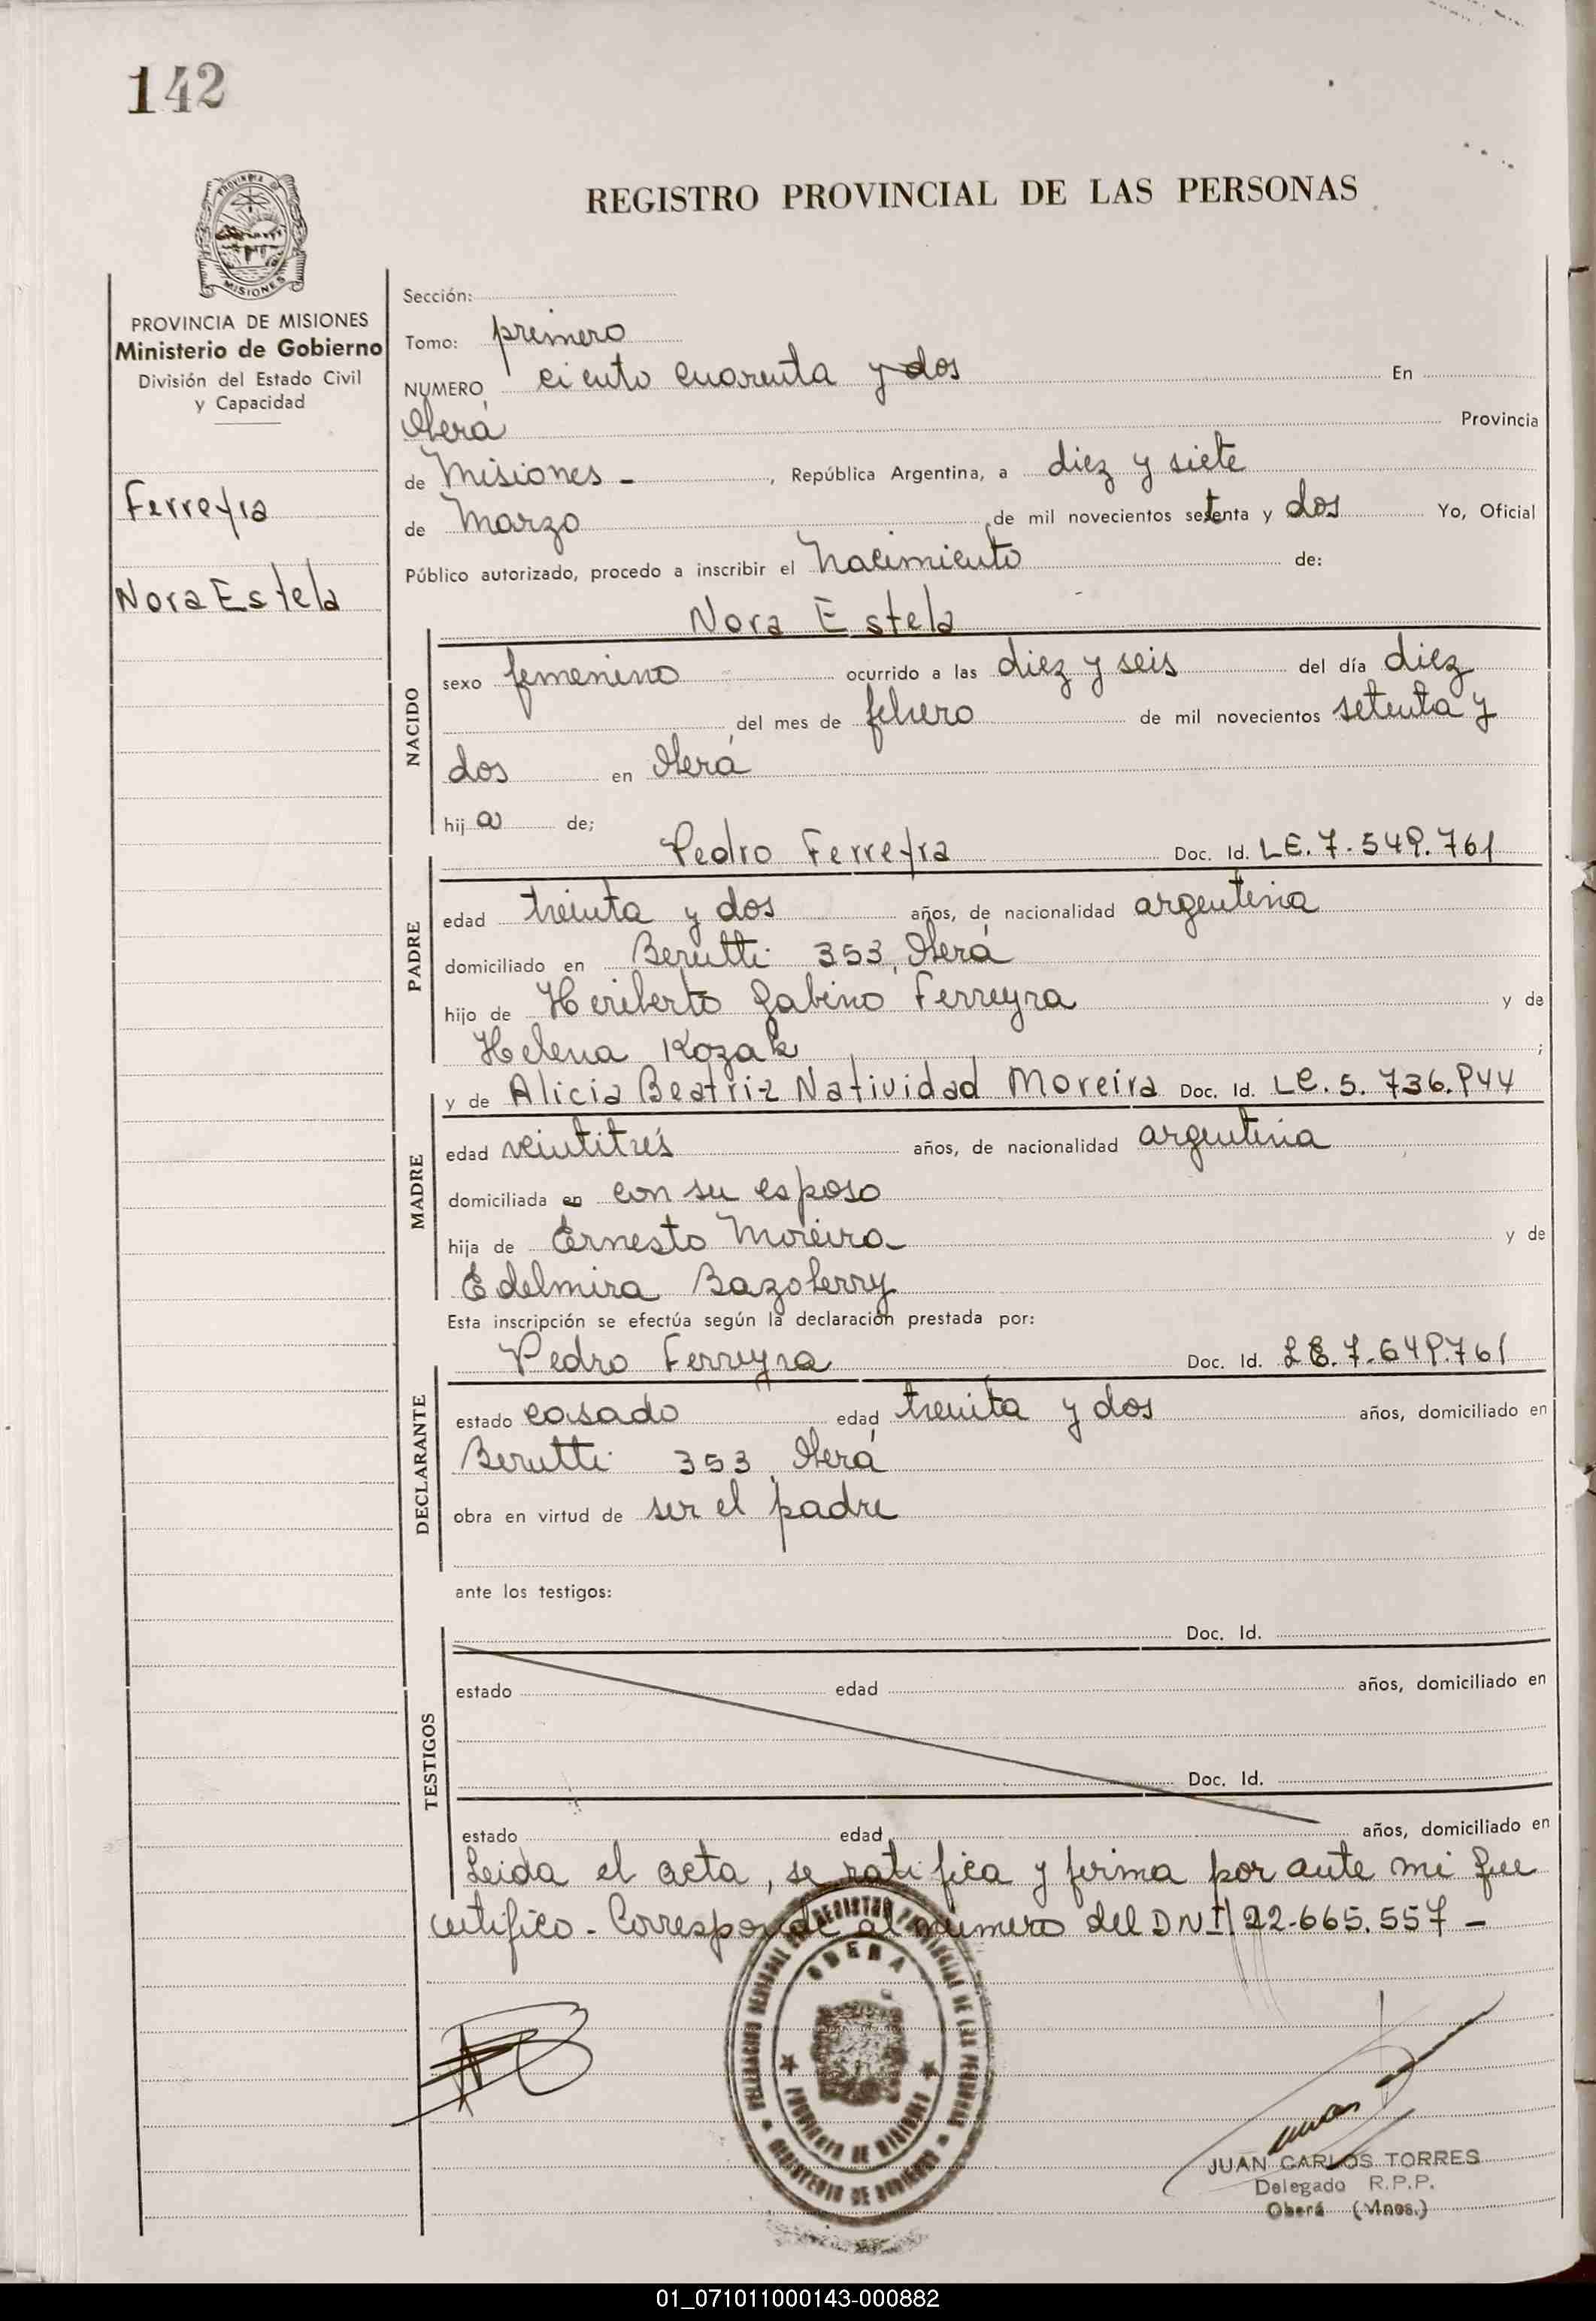 142
PROVINCIA DE
MISIONES
PROVINCIA DE MISIONES
Ministerio de Gobierno
División del Estado Civil
y Capacidad
Ferreyra
Nora Estela
REGISTRO PROVINCIAL DE LAS PERSONAS
Sección:
Tomo: primero
NUMERO ciento cuarenta y dos En
Oberá Provincia
de Misiones - , República Argentina, a diez y siete
de Marzo de mil novecientos setenta y dos Yo, Oficial
Público autorizado, procedo a inscribir el Nacimiento de:
Nora Estela
NACIDO
sexo femenino ocurrido a las diez y seis del día diez
del mes de febrero de mil novecientos setenta y
dos en Oberá
hij a de;
Pedro Ferreyra Doc. Id. LE. 7.549.761
PADRE
edad treinta y dos años, de nacionalidad argentina
domiciliado en Berutti 353, Oberá
hijo de Heriberto Gabino Ferreyra y de
Helena Kozak ;
y de Alicia Beatriz Natividad Moreira Doc. Id. LC. 5. 736.944
MADRE
edad veintitrés años, de nacionalidad argentina
domiciliada en con su esposo
hija de Ernesto Moreira y de
Edelmira Bazoberry
Esta inscripción se efectúa según la declaración prestada por:
Pedro Ferreyra Doc. Id. LE. 7.649.761
DECLARANTE
estado casado edad treinta y dos años, domiciliado en
Berutti 353, Oberá
obra en virtud de ser el padre
ante los testigos:
Doc. Id.
TESTIGOS
estado edad años, domiciliado en
Doc. Id.
estado edad años, domiciliado en
Leida el acta, se ratifica y firma por ante mi que
certifico - Corresponde al número del DNI 22-665.557 -
OBERA
PROVINCIA DE MISIONES
MINISTERIO DE GOBIERNO
JUAN CARLOS TORRES
Delegado R.P.P.
Oberá (Mnes.)
01_071011000143-000882